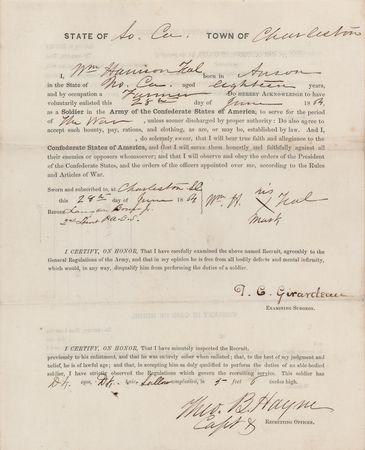 STATE OF So. Ca. TOWN OF Charleston
I, Wm Harrison Teal born in Anson
in the State of No. Ca. aged eighteen years,
and by occupation a Farmer Do HEREBY ACKNOWLEDGE to have
voluntarily enlisted this 28th day of June 1864,
as a Soldier in the Army of the Confederate States of America, to serve for the period
of The War , unless sooner discharged by proper authority: Do also agree to
accept such bounty, pay, rations, and clothing, as are, or may be, established by law. And I,
, do solemnly swear, that I will bear true faith and allegiance to the
Confederate States of America, and that I will serve them honestly and faithfully against all
their enemies or opposers whomsoever; and that I will observe and obey the orders of the President
of the Confederate States, and the orders of the officers appointed over me, according to the Rules
and Articles of War.
Sworn and subscribed to, at Charleston SC
this 28th day of June 1864
Wm. H. his X Teal
mark
2nd Lieut P.A.C.S.
I CERTIFY, ON HONOR, That I have carefully examined the above named Recruit, agreeably to the
General Regulations of the Army, and that in my opinion he is free from all bodily defects and mental infirmity,
which would, in any way, disqualify him from performing the duties of a soldier.
T. C. Girardeau
EXAMINING SURGEON.
I CERTIFY, ON HONOR, That I have minutely inspected the Recruit,
previously to his enlistment, and that he was entirely sober when enlisted; that, to the best of my judgment and
belief, he is of lawful age; and that, in accepting him as duly qualified to perform the duties of an able-bodied
soldier, I have strictly observed the Regulations which govern the recruiting service. This soldier has
Dk. eyes, Dk. hair, Sallow complexion, is 5 feet 6 inches high.
Theo. B. Hayne
Capt &
RECRUITING OFFICER.